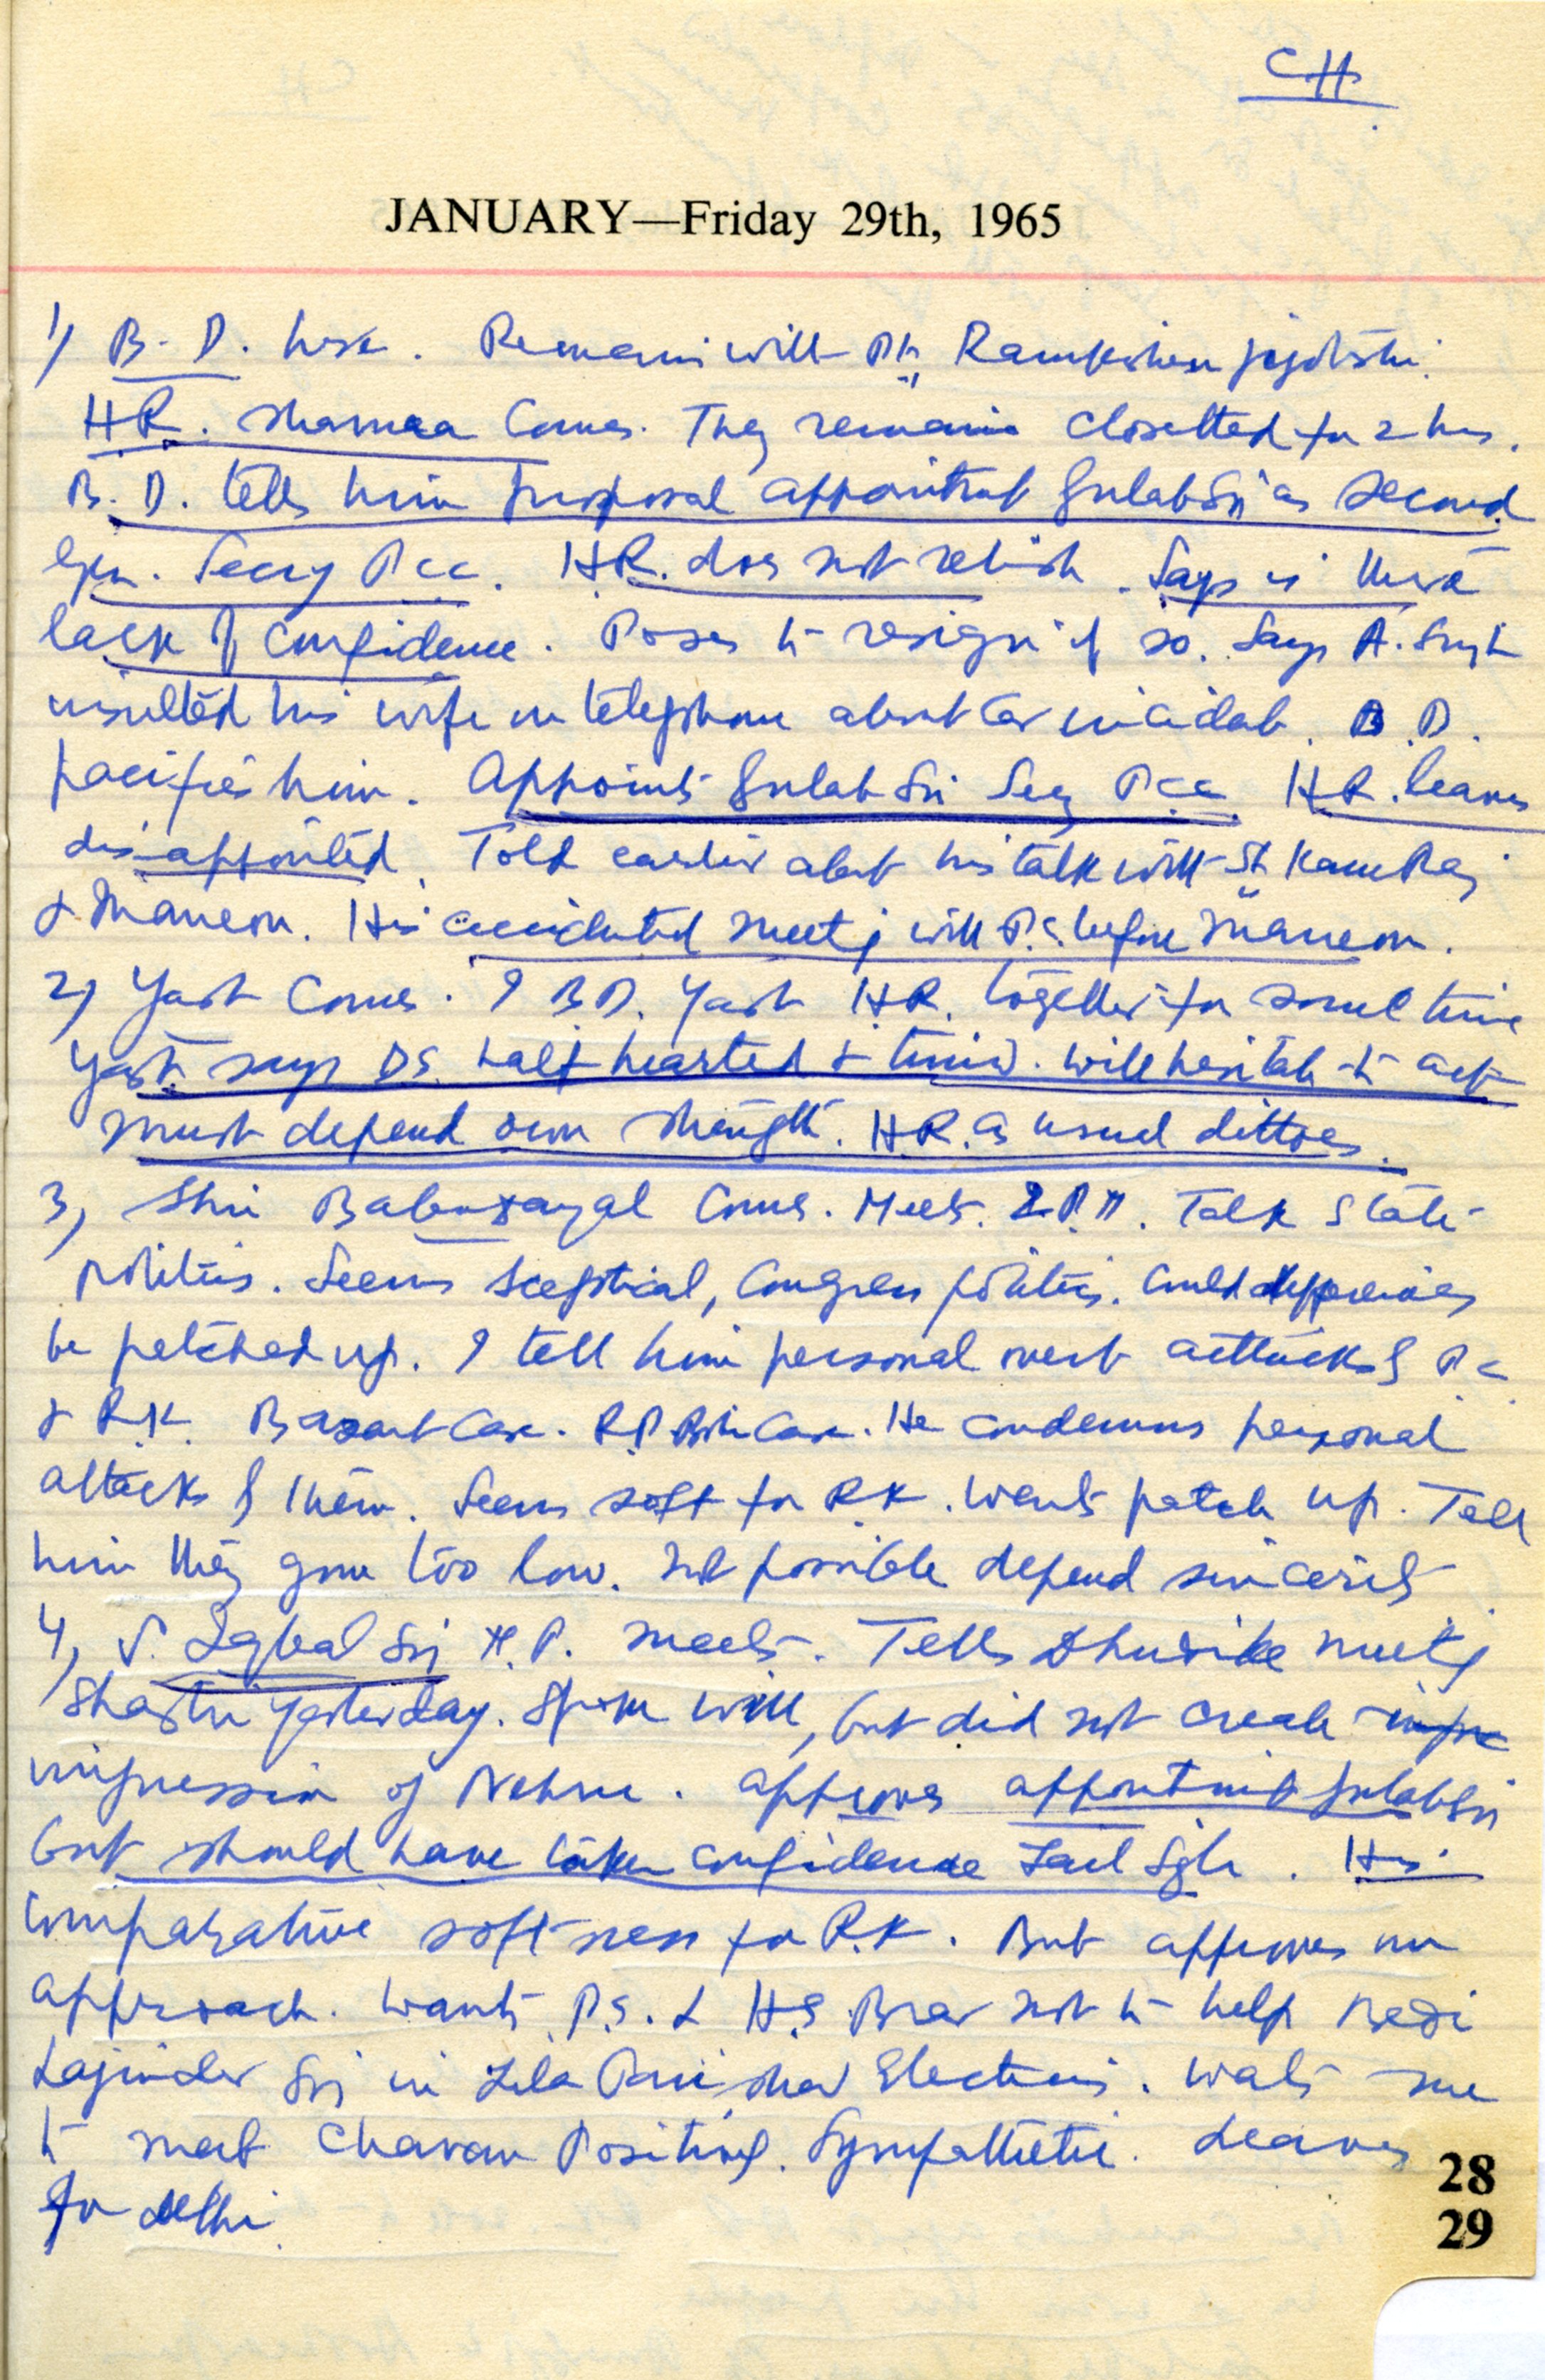 CH
JANUARY—Friday 29th, 1965
1) B. D. here. Remains with Pt. Ramkishen
H.R. Sharma comes. They remain closetted for 2 hrs.
B. D. tells him proposal appointmt GulabSi as second
Gen. Secy P.c.c. H.R. does not relish. Says is there
lack of confidence. Poses to resign if so. Says A. Singh
insulted his wife on telephone about car incident. B. D.
pacifies him. Appoints Gulab Si Secy P.c.c. H.R. leaves
disappointed. Told earlier about his talk with St Kam Raj
& Maneon. His accidental meetg with P.S. before Maneon.
2) Yash comes. I BD. Yash H.R. together for some time
Yash says DS. half hearted & timid. Will hesitate to act
must depend own strength. H.R. as usual dittoes.
3) Shri comes. Meets. Talk State
politics. Seems sceptical, Congress politics. Could differences
be patched up. I tell him personal overt attacks of P.c
& R.K. Basant Case. Case. He condemns personal
attacks of them. Seems soft for R.K. Wants patch up. Tell
him they gone too low. Not possible depend sincerity
4) S. Iqbal Si M.P. meets. Tells meetg
Shastri yesterday. Spoke well, but did not create impre
impression of Nehru. Approves appointmt GulabSi
but should have taken confidence Zail Sgh. His
comparative softness for R.K. But approves our
approach. Wants P.S. & H.S. Brar not to help Bedi
Lajinder Si in Zila Parishad Elections. Wants me
to meet Chavan Positively. Sympathetic. Leaves
for Delhi.
28
29